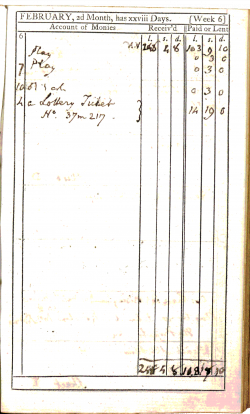 FEBRUARY, 2d Month, has xxviii Days. [Week 6]
Account of Monies Receiv'd Paid or Lent
l. s. d. l. s. d.
6 248 5 8 103 9 10
Play 0 3 0
7 Play 0 3 0
10 0 3 0
a Lottery Ticket
No. 37m217. 14 19 6
248 5 8